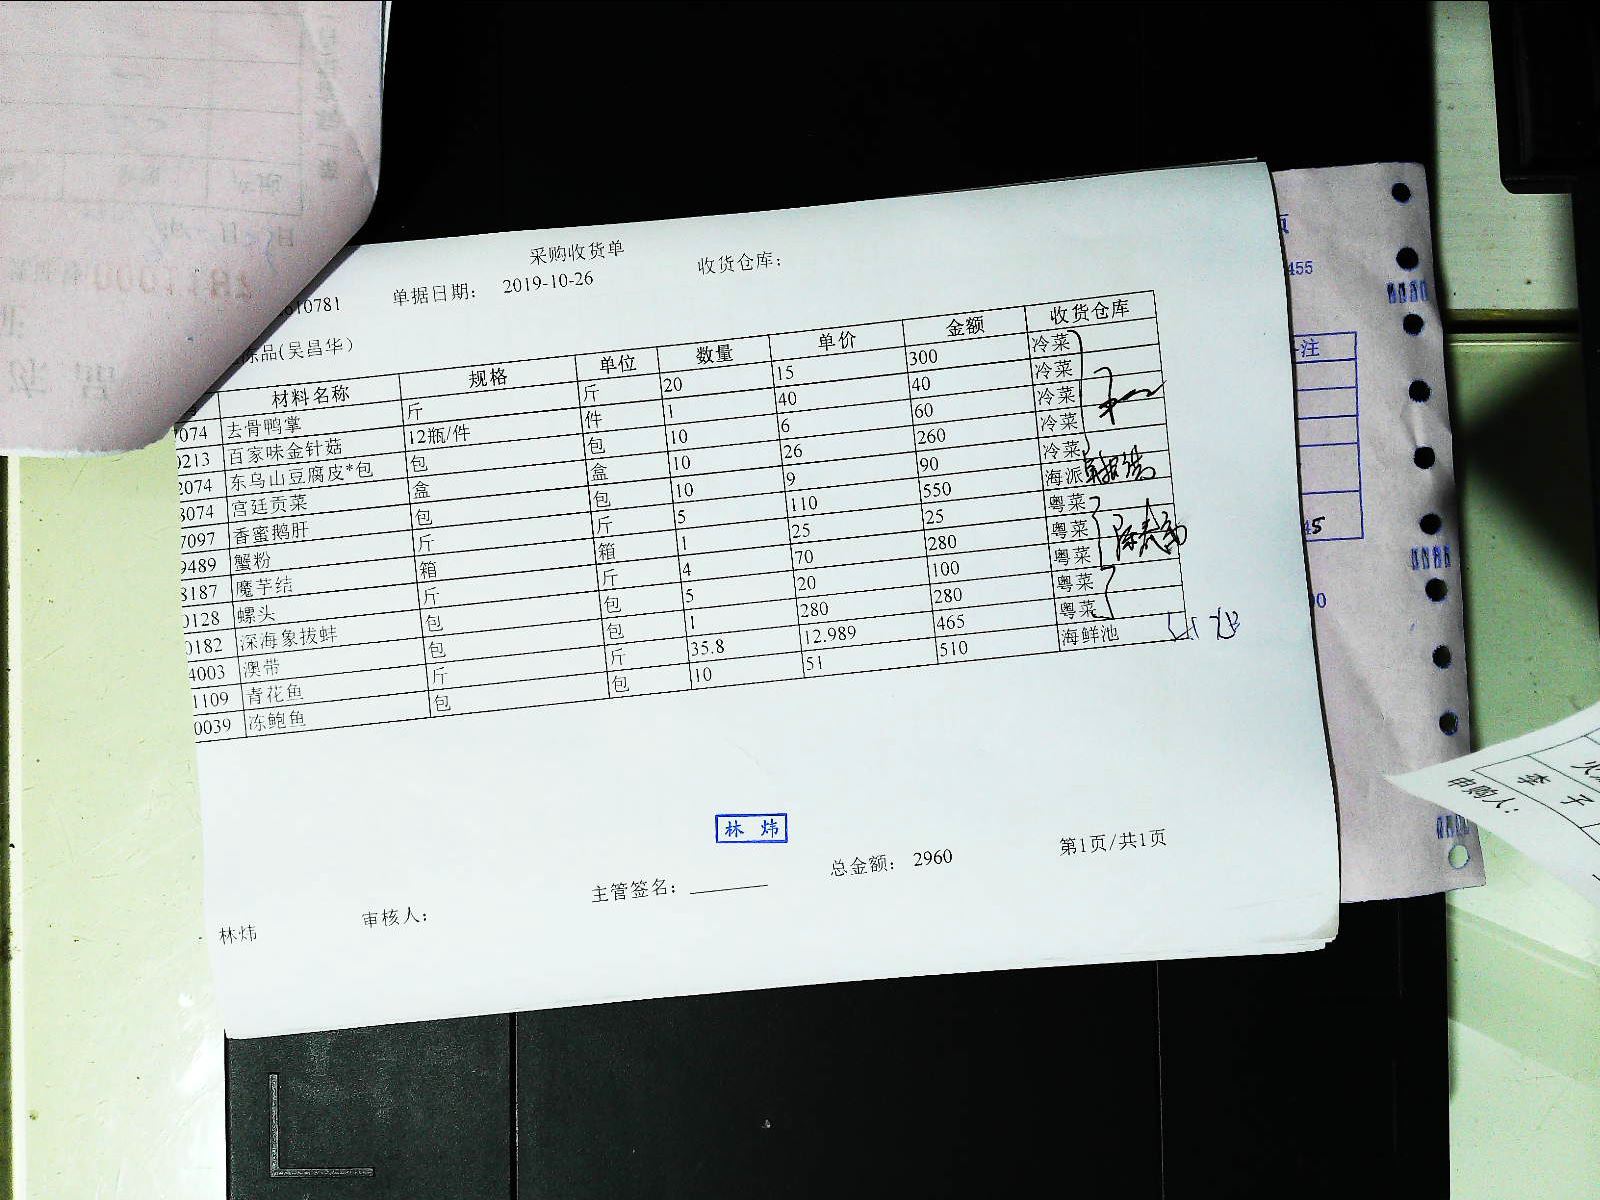 采购收货单
610781 单据日期： 2019-10-26 收货仓库：
冻品(吴昌华)
材料名称 规格 单位 数量 单价 金额 收货仓库
074 去骨鸭掌 斤 斤 20 15 300 冷菜
0213 百家味金针菇 12瓶/件 件 1 40 40 冷菜
2074 东乌山豆腐皮*包 包 包 10 6 60 冷菜
8074 宫廷贡菜 盒 盒 10 26 260 冷菜
7097 香蜜鹅肝 包 包 10 9 90 冷菜
9489 蟹粉 斤 斤 5 110 550 海派
8187 魔芋结 箱 箱 1 25 25 粤菜
0128 螺头 斤 斤 4 70 280 粤菜
0182 深海象拔蚌 包 包 5 20 100 粤菜
4003 澳带 包 包 1 280 280 粤菜
1109 青花鱼 斤 斤 35.8 12.989 465 粤菜
0039 冻鲍鱼 包 包 10 51 510 海鲜池
林 炜
主管签名： 总金额： 2960 第1页/共1页
林炜 审核人：
页
455
注
45
00
李子
申购人：